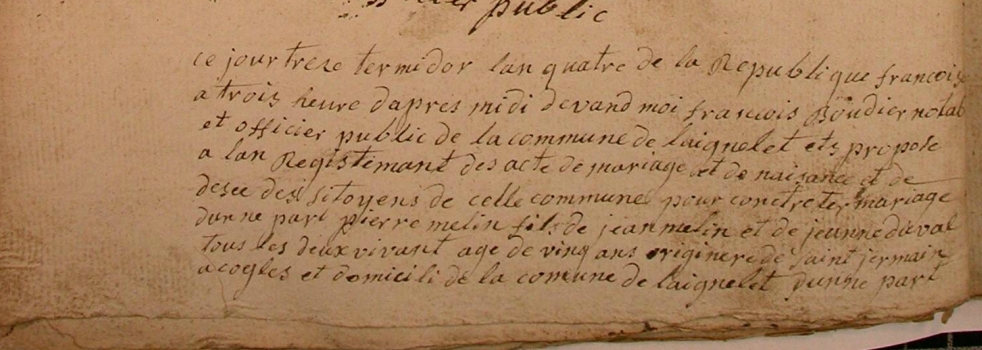 officier public
ce jour treze termidor lan quatre de la Republique francoise
a trois heure dapres midi devand moi francois Boudier notab
et officier public de la commune de laignelet ets propose
a lan Registemant des acte de mariage et de naisance et de
dese des sitoyens de celle commune pour contreter mariage
dunne part pierre melin fils de jean melin et de jeunne duval
tous les deux vivant age de vingt ans originere de saint jermain
a cogles et domicili de la comune de laignelet dunne part